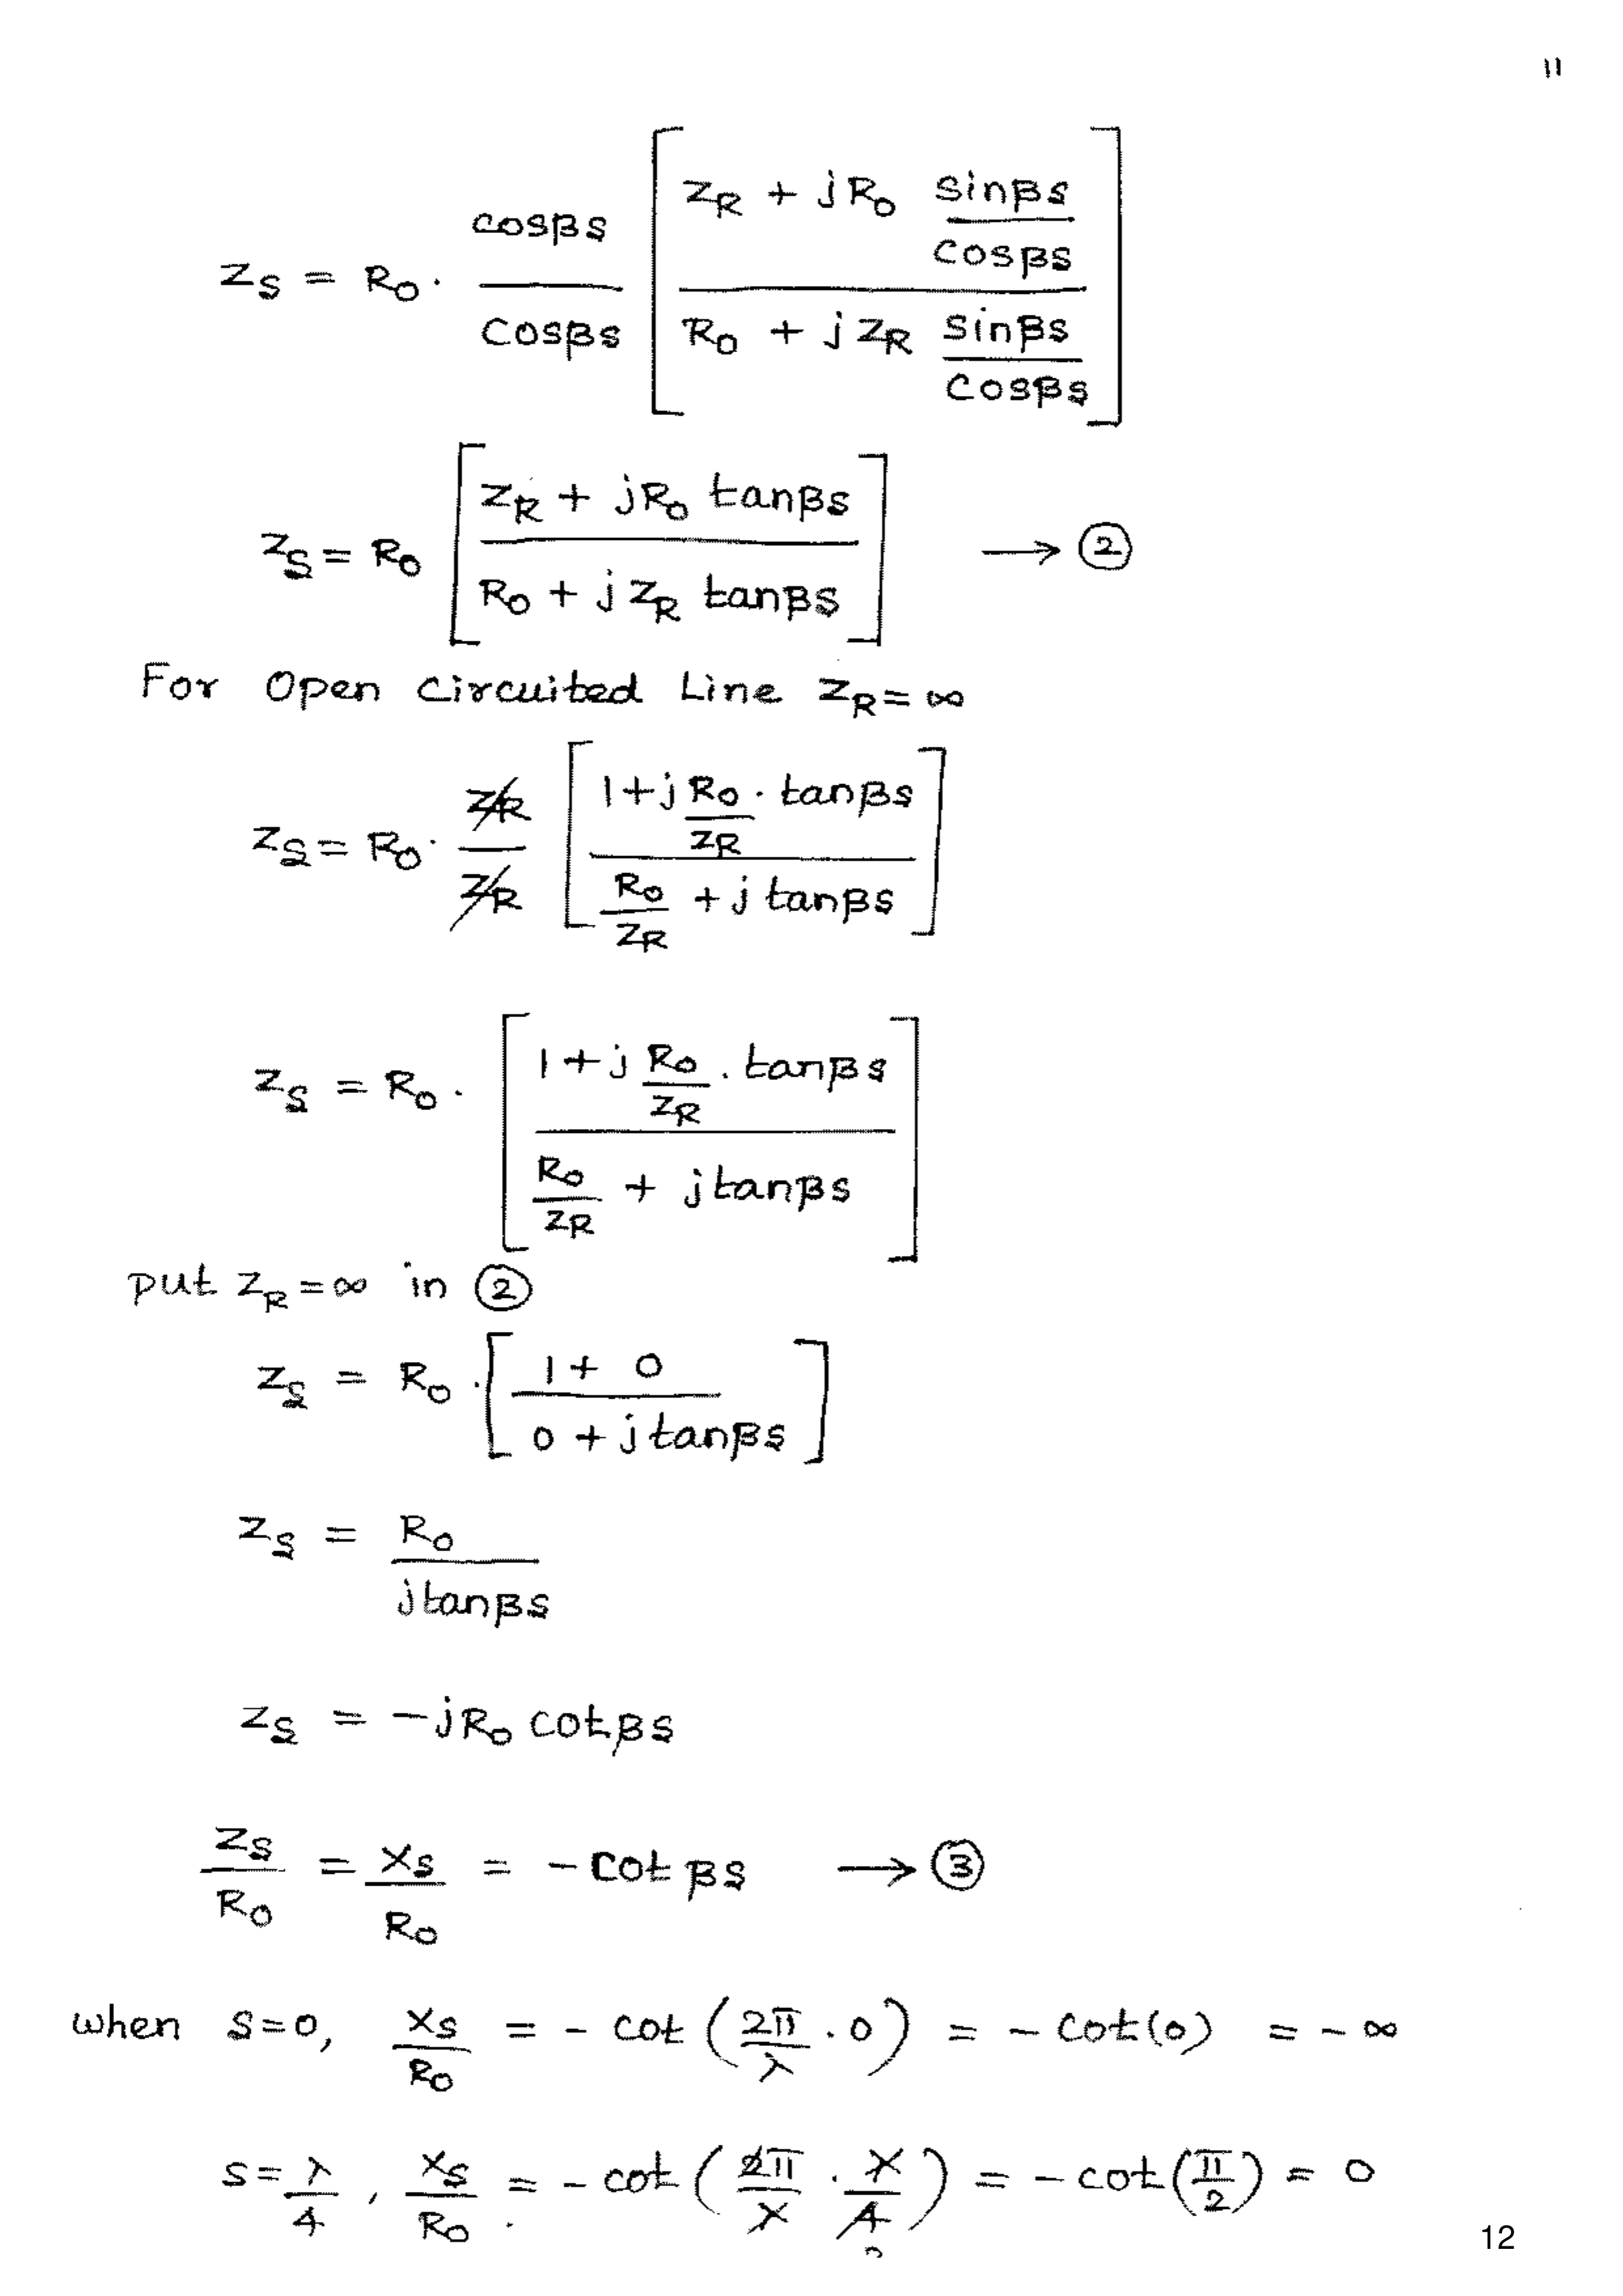 11
Z_S = R_0 · \frac{cosβs}{cosβs} \left[ \frac{Z_R + jR_0 \frac{sinβs}{cosβs}}{R_0 + jZ_R \frac{sinβs}{cosβs}} \right]
Z_S = R_0 \left[ \frac{Z_R + jR_0 tanβs}{R_0 + jZ_R tanβs} \right] → ②
For Open Circuited Line Z_R = ∞
Z_S = R_0 · \frac{Z_R}{Z_R} \left[ \frac{1 + j\frac{R_0}{Z_R} · tanβs}{\frac{R_0}{Z_R} + j tanβs} \right]
Z_S = R_0 · \left[ \frac{1 + j\frac{R_0}{Z_R} · tanβs}{\frac{R_0}{Z_R} + j tanβs} \right]
put Z_R = ∞ in ②
Z_S = R_0 · \left[ \frac{1 + 0}{0 + j tanβs} \right]
Z_S = \frac{R_0}{j tanβs}
Z_S = -jR_0 cotβs
\frac{Z_S}{R_0} = \frac{X_S}{R_0} = -cotβs → ③
when s=0, \frac{X_S}{R_0} = -cot(\frac{2π}{λ} · 0) = -cot(0) = -∞
s = \frac{λ}{4}, \frac{X_S}{R_0} = -cot(\frac{2π}{λ} · \frac{λ}{4}) = -cot(\frac{π}{2}) = 0
12